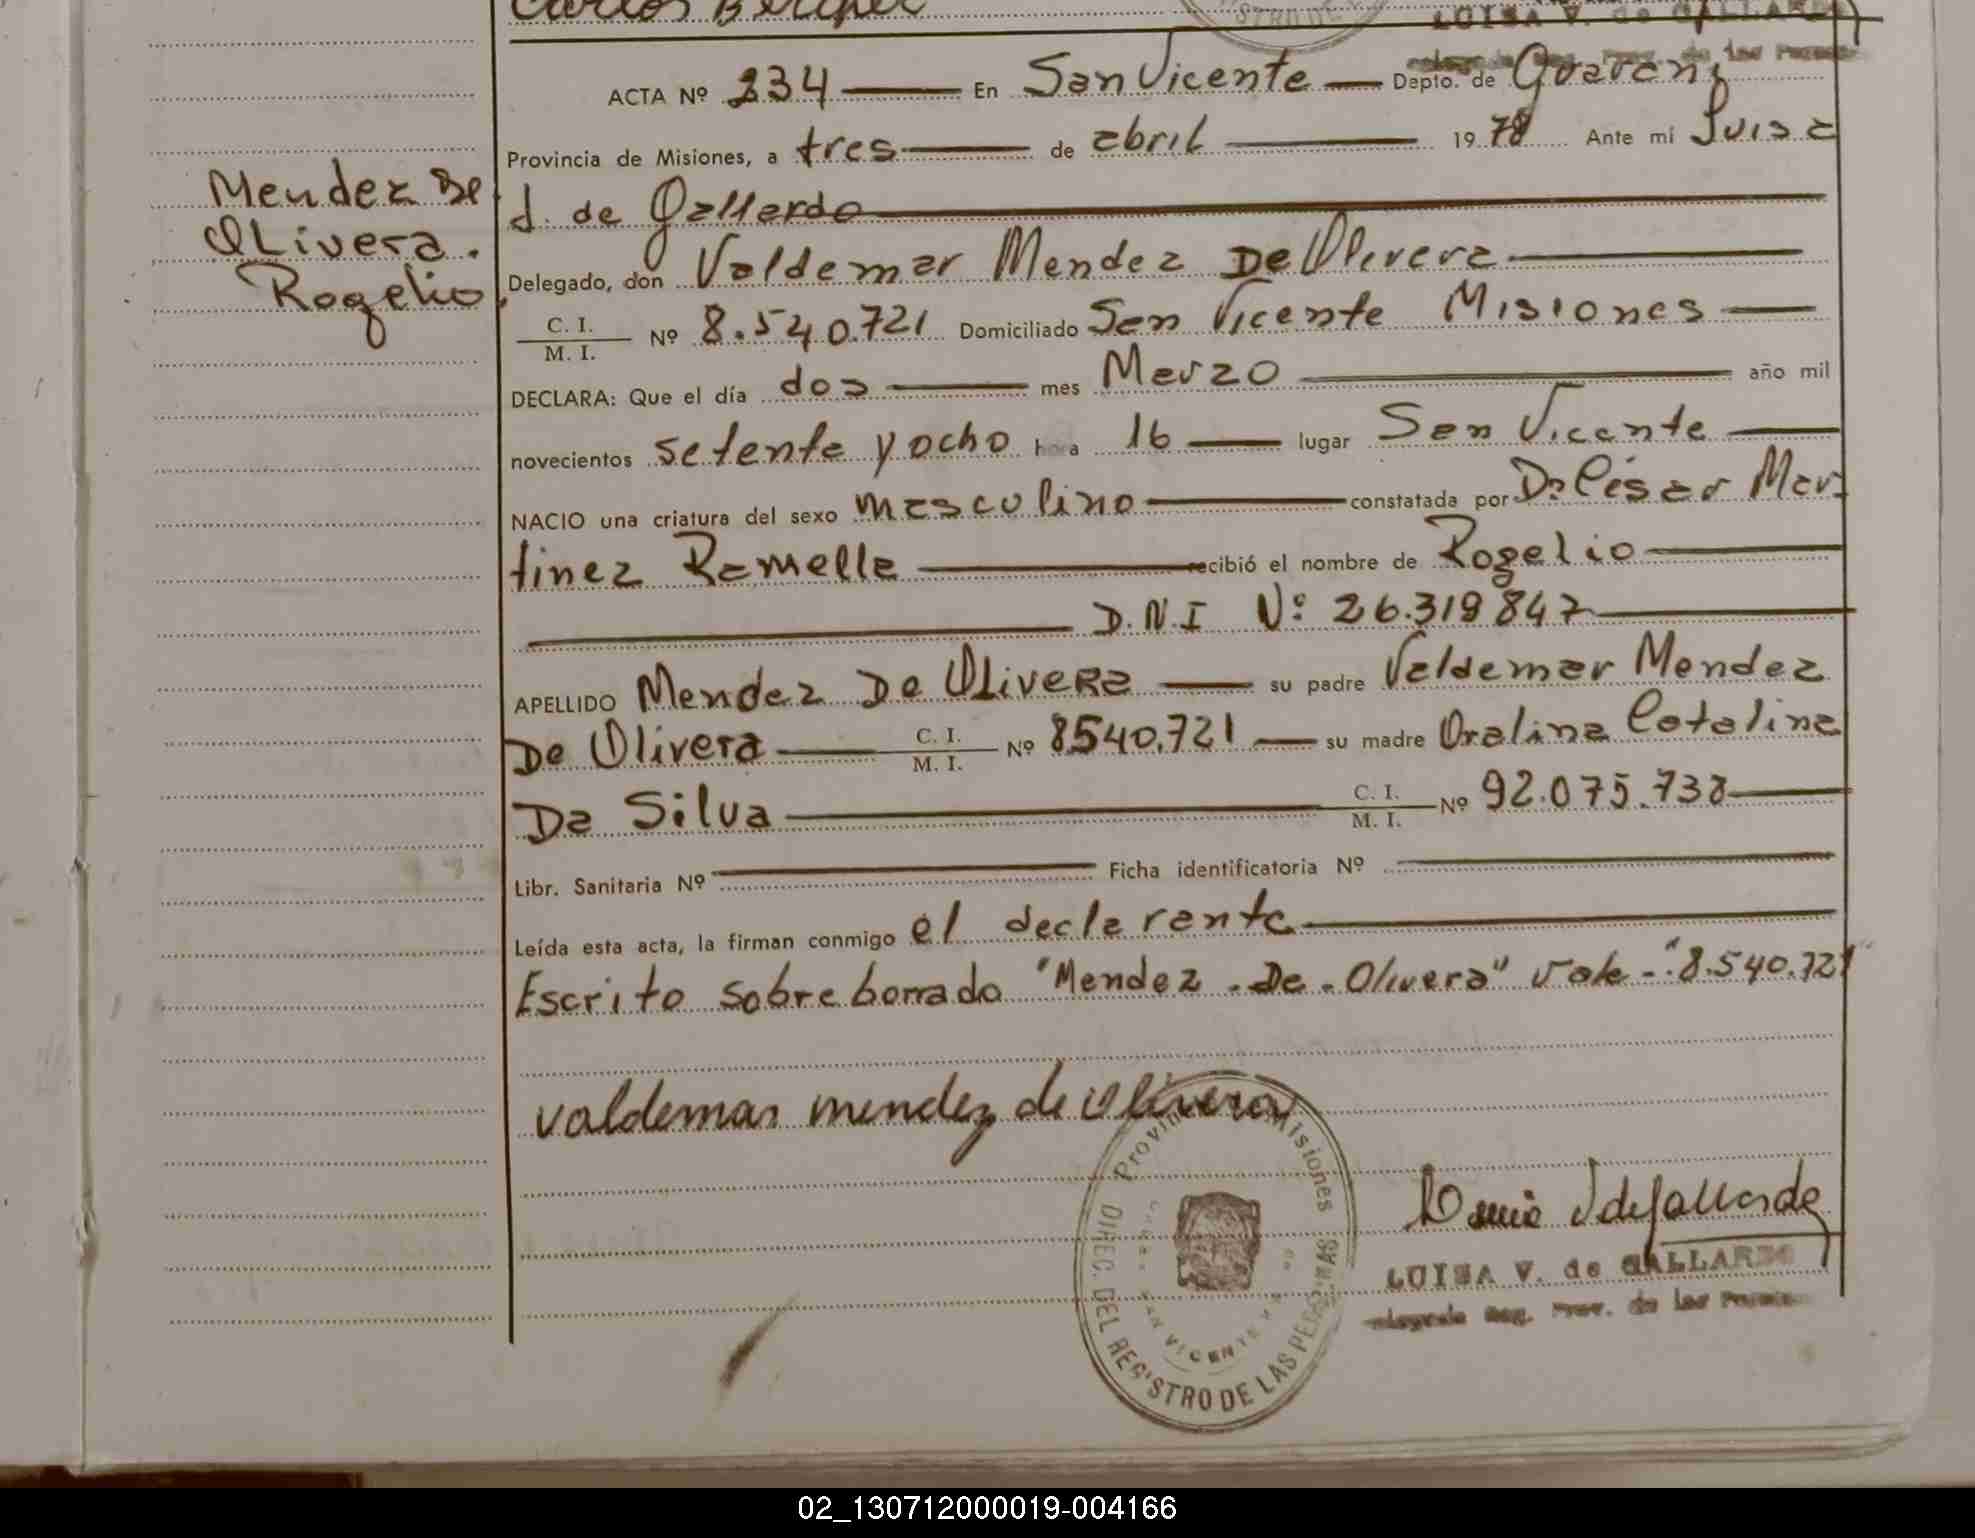 Carlos
LUISA V. de GALLARDO
ACTA Nº 234 En San Vicente Depto. de Guarani
Provincia de Misiones, a tres de abril 1978 Ante mí Luisa
J. de Gallardo
Mendez De
Olivera.
Rogelio
Delegado, don Valdemar Mendez De Olivera
C. I.
M. I. Nº 8.540.721 Domiciliado San Vicente Misiones
DECLARA: Que el día dos mes Marzo año mil
novecientos setenta y ocho hora 16 lugar San Vicente
NACIO una criatura del sexo masculino constatada por Dr César Mar-
tinez Ramella recibió el nombre de Rogelio
D.N.I Nº 26.319847
APELLIDO Mendez De Olivera su padre Valdemar Mendez
De Olivera C. I. M. I. Nº 8540.721 su madre Oralina Catalina
Da Silva C. I. M. I. Nº 92.075.738
Libr. Sanitaria Nº Ficha identificatoria Nº
Leída esta acta, la firman conmigo el declarante
Escrito sobre borrado "Mendez .De. Olivera" Vale - "8.540.721"
valdemar mendez de olivera
Provincia Misiones
DIREC. DEL REGISTRO DE LAS PERSONAS
SAN VICENTE
LUISA V. de GALLARDO
Reg. Prov. de las
02_130712000019-004166